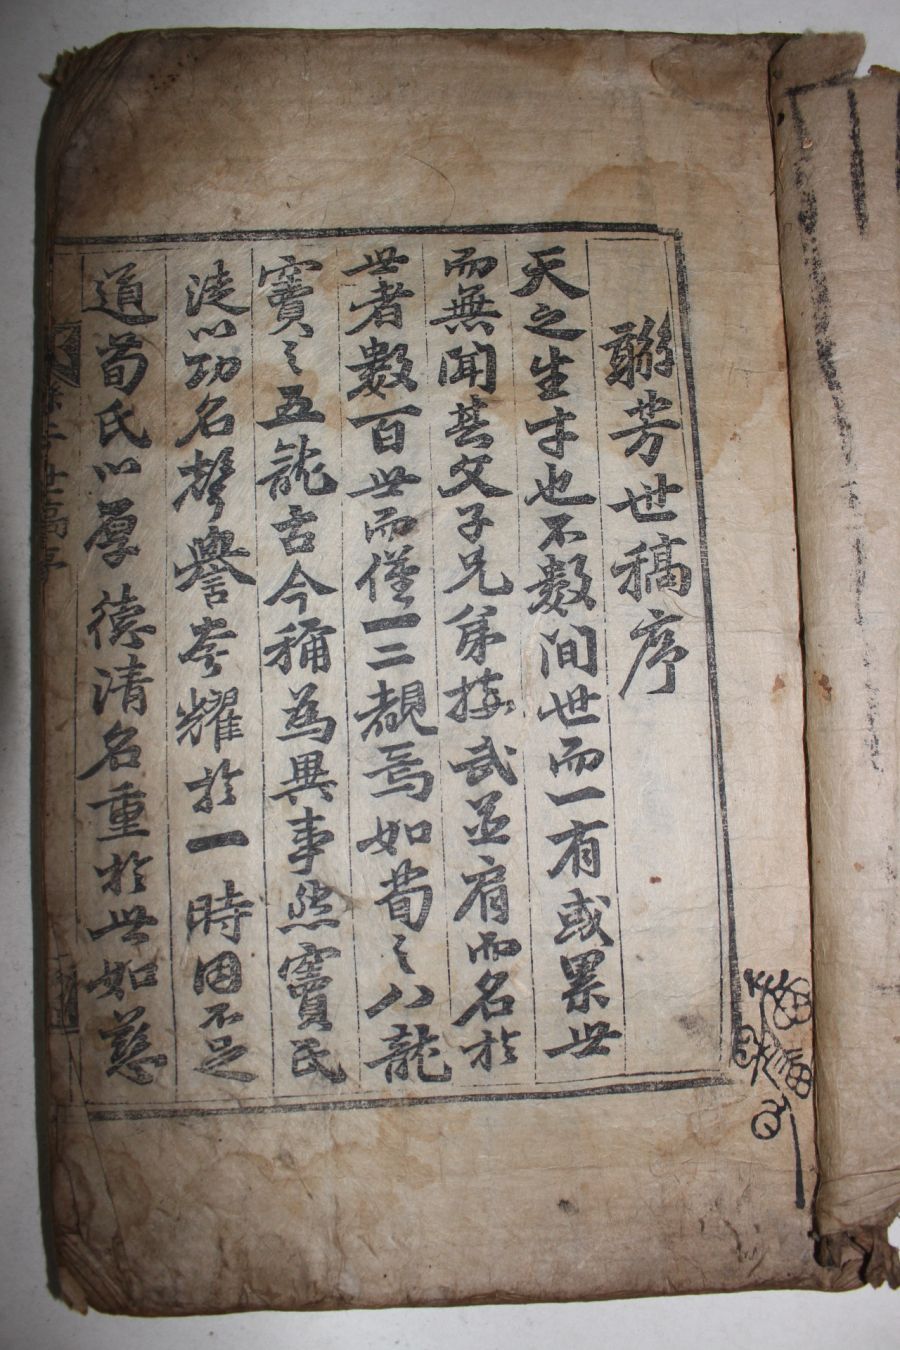 聯芳世稿序
天之生才也不數間世而一有或累世
而無聞其父子兄弟接武並肩而名於
世者數百世而僅一二覩焉如荀之八龍
竇之五龍古今稱為異事然竇氏
徒以功名聲譽夸耀於一時固不足
道荀氏以厚德清名重於世如慈